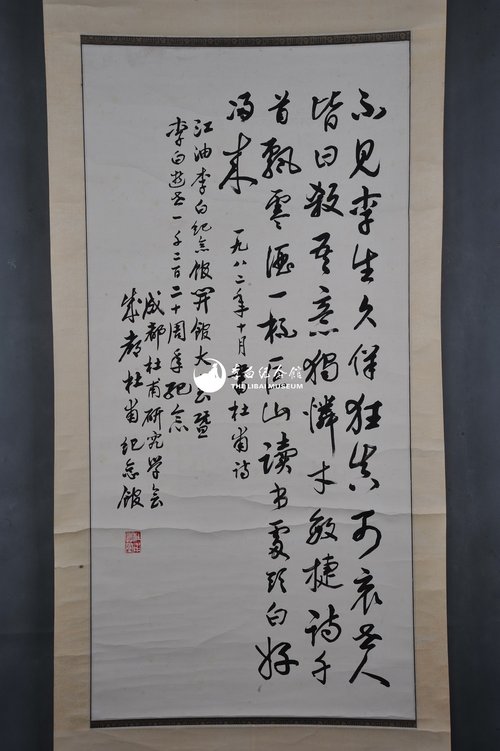 不见李生久佯狂真可哀世人
皆曰殺吾意独憐才敏捷诗千
首飘零酒一杯匡山读书處头白好
归来
一九八二年十月書杜甫诗
江油李白纪念馆開馆大会暨
李白逝世一千二百二十周年纪念
成都杜甫研究学会
成都杜甫纪念馆
李白纪念馆
THE LIBAI MUSEUM